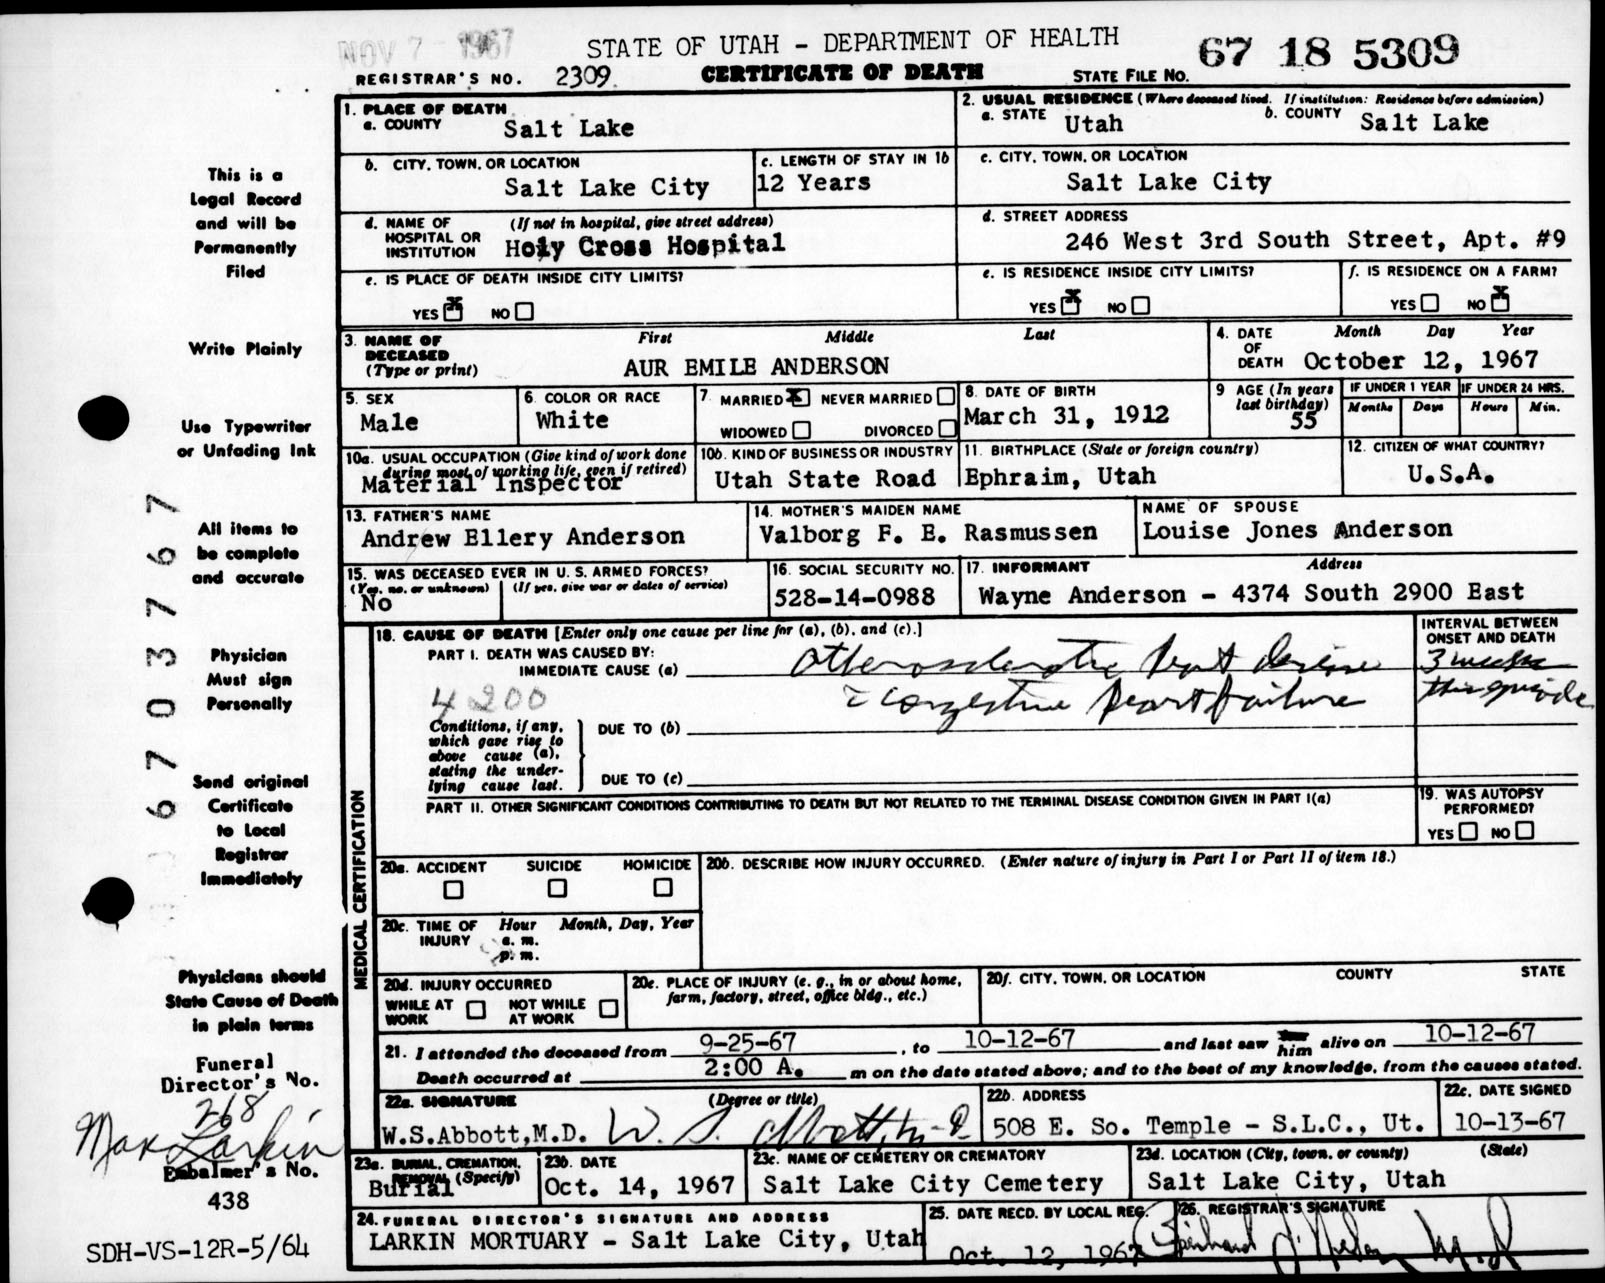 NOV 7 - 1967
STATE OF UTAH - DEPARTMENT OF HEALTH
67 18 5309
REGISTRAR'S NO. 2309
CERTIFICATE OF DEATH
STATE FILE NO.
1. PLACE OF DEATH
a. COUNTY
Salt Lake
2. USUAL RESIDENCE (Where deceased lived. If institution: Residence before admission)
a. STATE Utah
b. COUNTY Salt Lake
b. CITY, TOWN, OR LOCATION
Salt Lake City
c. LENGTH OF STAY IN 1b
12 Years
c. CITY, TOWN, OR LOCATION
Salt Lake City
d. NAME OF HOSPITAL OR INSTITUTION
(If not in hospital, give street address)
Holy Cross Hospital
d. STREET ADDRESS
246 West 3rd South Street, Apt. #9
e. IS PLACE OF DEATH INSIDE CITY LIMITS?
YES X NO
e. IS RESIDENCE INSIDE CITY LIMITS?
YES X NO
f. IS RESIDENCE ON A FARM?
YES NO X
3. NAME OF DECEASED (Type or print)
First Middle Last
AUR EMILE ANDERSON
4. DATE OF DEATH
Month Day Year
October 12, 1967
5. SEX
Male
6. COLOR OR RACE
White
7. MARRIED X NEVER MARRIED
WIDOWED DIVORCED
8. DATE OF BIRTH
March 31, 1912
9 AGE (In years last birthday)
55
IF UNDER 1 YEAR
Months Days
IF UNDER 24 HRS.
Hours Min.
10a. USUAL OCCUPATION (Give kind of work done during most of working life, even if retired)
Material Inspector
10b. KIND OF BUSINESS OR INDUSTRY
Utah State Road
11. BIRTHPLACE (State or foreign country)
Ephraim, Utah
12. CITIZEN OF WHAT COUNTRY?
U.S.A.
13. FATHER'S NAME
Andrew Ellery Anderson
14. MOTHER'S MAIDEN NAME
Valborg F. E. Rasmussen
NAME OF SPOUSE
Louise Jones Anderson
15. WAS DECEASED EVER IN U. S. ARMED FORCES?
(Yes, no, or unknown) (If yes, give war or dates of service)
No
16. SOCIAL SECURITY NO.
528-14-0988
17. INFORMANT Address
Wayne Anderson - 4374 South 2900 East
MEDICAL CERTIFICATION
18. CAUSE OF DEATH [Enter only one cause per line for (a), (b), and (c).]
PART I. DEATH WAS CAUSED BY:
IMMEDIATE CAUSE (a) Atherosclerotic heart disease
c̄ congestive heart failure
4200
INTERVAL BETWEEN ONSET AND DEATH
3 weeks
this episode
Conditions, if any, which gave rise to above cause (a), stating the underlying cause last.
DUE TO (b)
DUE TO (c)
PART II. OTHER SIGNIFICANT CONDITIONS CONTRIBUTING TO DEATH BUT NOT RELATED TO THE TERMINAL DISEASE CONDITION GIVEN IN PART I(a)
19. WAS AUTOPSY PERFORMED?
YES NO
20a. ACCIDENT SUICIDE HOMICIDE
20b. DESCRIBE HOW INJURY OCCURRED. (Enter nature of injury in Part I or Part II of item 18.)
20c. TIME OF INJURY
Hour Month, Day, Year
a. m.
p. m.
20d. INJURY OCCURRED
WHILE AT WORK NOT WHILE AT WORK
20e. PLACE OF INJURY (e. g., in or about home, farm, factory, street, office bldg., etc.)
20f. CITY, TOWN, OR LOCATION COUNTY STATE
21. I attended the deceased from 9-25-67, to 10-12-67 and last saw him alive on 10-12-67
Death occurred at 2:00 A. m on the date stated above; and to the best of my knowledge, from the causes stated.
22a. SIGNATURE (Degree or title)
W.S.Abbott,M.D. W. S. Abbott, M.D.
22b. ADDRESS
508 E. So. Temple - S.L.C., Ut.
22c. DATE SIGNED
10-13-67
23a. BURIAL, CREMATION, REMOVAL (Specify)
Burial
23b. DATE
Oct. 14, 1967
23c. NAME OF CEMETERY OR CREMATORY
Salt Lake City Cemetery
23d. LOCATION (City, town, or county) (State)
Salt Lake City, Utah
24. FUNERAL DIRECTOR'S SIGNATURE AND ADDRESS
LARKIN MORTUARY - Salt Lake City, Utah
25. DATE RECD. BY LOCAL REG.
Oct. 12, 1967
26. REGISTRAR'S SIGNATURE
This is a
Legal Record
and will be
Permanently
Filed
Write Plainly
Use Typewriter
or Unfading Ink
All items to
be complete
and accurate
Physician
Must sign
Personally
Send original
Certificate
to Local
Registrar
Immediately
Physicians should
State Cause of Death
in plain terms
Funeral
Director's No.
268
Max Larkin
Embalmer's No.
438
SDH-VS-12R-5/64
6703767